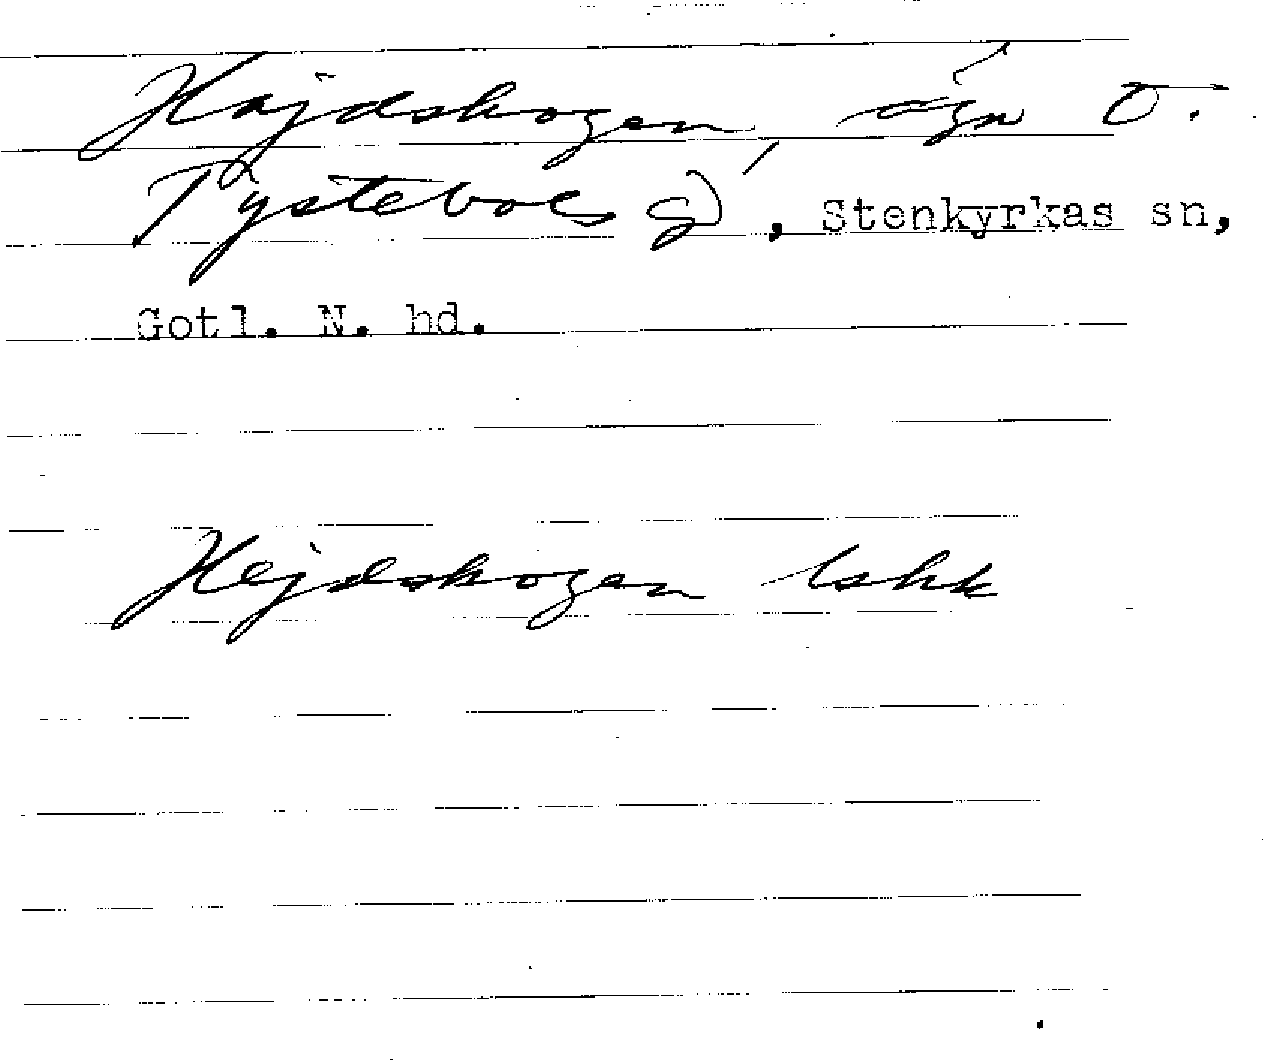 Hajdskogen, ägn Ö.
Tystebols gd, Stenkyrkas sn,
Gotl. N. hd.
Hejdskogen lshk